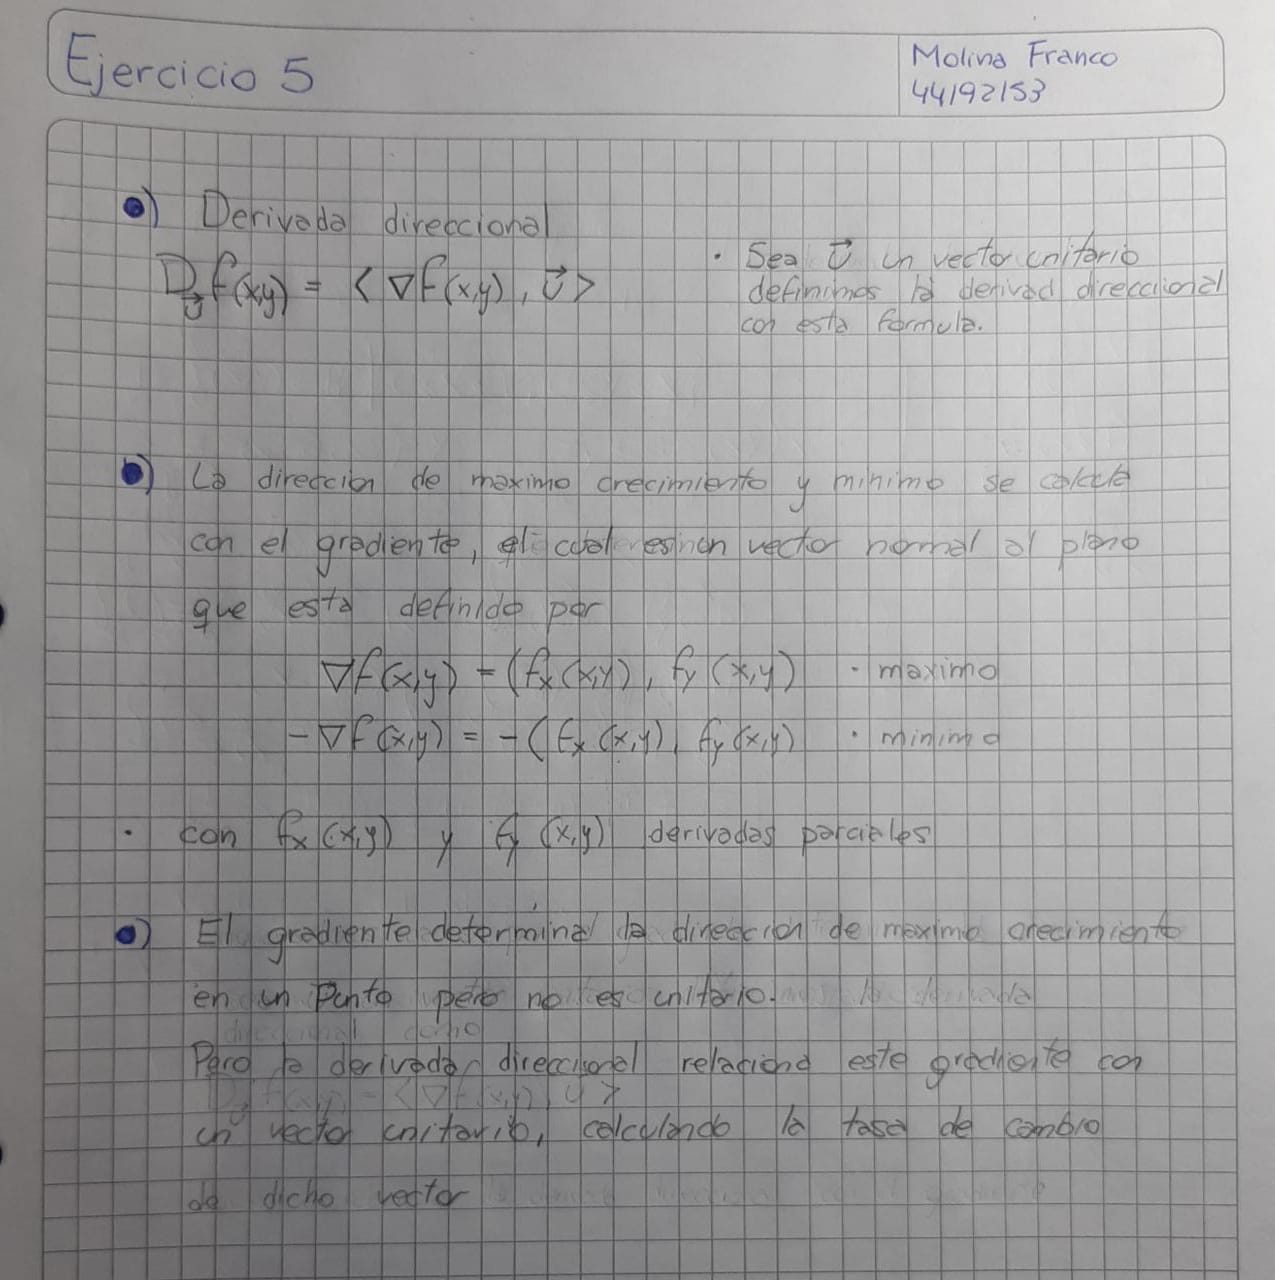 Ejercicio 5
Molina Franco
44192153
) Derivada direccional
D_v⃗ f(x,y) = < ∇f(x,y) , v⃗ >
· Sea v⃗ un vector unitario
definimos la derivad direccional
con esta formula.
) La direccion de maximo crecimiento y minimo se calcula
con el gradiente, el cual es un vector normal al plano
que esta definido por
∇f(x,y) = (fx(x,y), fy(x,y) · maximo
-∇f(x,y) = -(fx(x,y), fy(x,y) · minimo
· con fx(x,y) y fy(x,y) derivadas parciales
) El gradiente determina la direccion de maximo crecimiento
en un Punto pero no es unitario.
Pero la derivada direccional relaciona este gradiente con
un vector unitario, calculando la tasa de cambio
de dicho vector